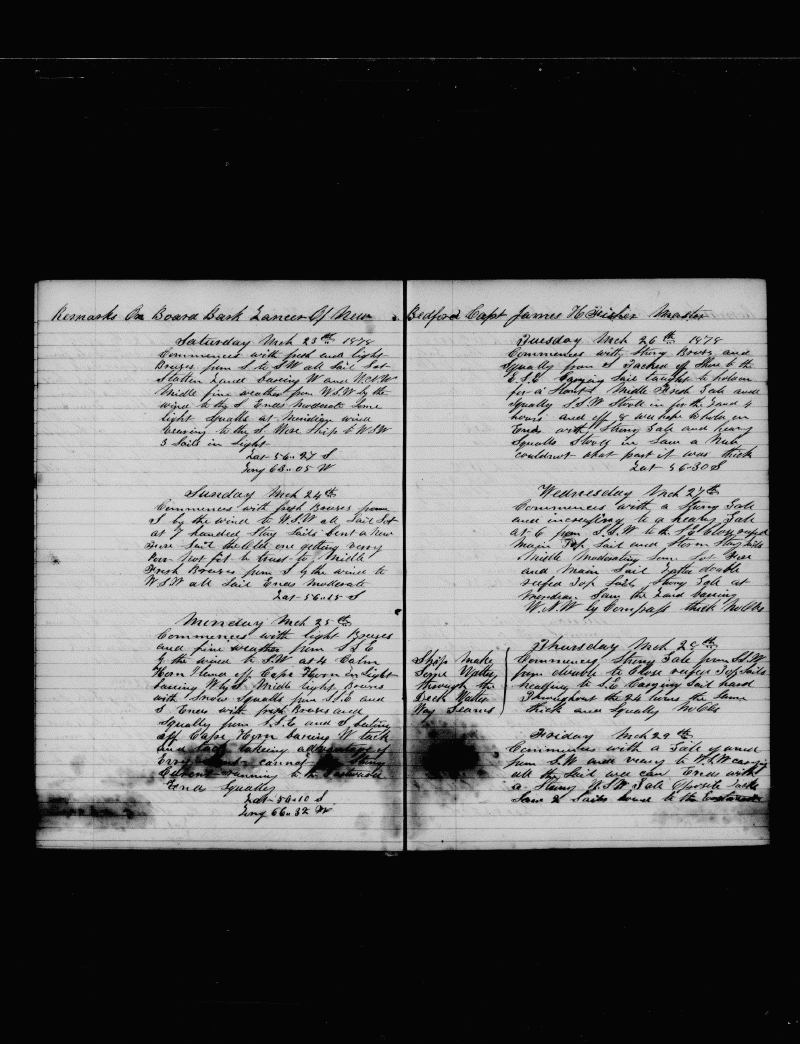 Remarks On Board Bark Lancer Of New
Saturday Mch 23th 1878
Commences with fresh and light
Breeses from S to SW all Sail Set
Statten Land bearing W and
Middle fine weather from W.S.W by the
wind to the S Ends Moderate some
light squalls at Meridian wind
veering to the S Wore Ship to WSW
3 Sails in Sight
Lat 56..27 S
Long 63..05 W
Sunday Mch 24th
Commences with fresh Breses from
S by the wind to W.S.W all Sail Set
at 7 handed Stay Sails bent a New
Sail the Old one getting very
Poor Not fit to trust to Middle
Fresh Breeses from S by the wind to
W S W all Sail Ends Moderate
Lat 56..15 S
Monday Mch 25th
Commences with light Breeses
and fine weather from S.S.E
by the wind to S.W. at 4 Calm
Horn Island off Cape Horn in Sight
bearing W by S Middle light Breeses
with Snow Squalls from S.S.E and
S Ends with fresh Breeses and
Squally from S.S.E and S beating
off Cape Horn bearing W tack
and tack takeing advantage of
Every cannot Strong
Current running to the Eastward
Ends Squally
Lat 56..10 S
Long 66..32 W
Bedford Capt James H Master
Tuesday Mch 26th 1878
Commences with Strong Breese and
Squally from S Tacked off Shore to the
E.S.E Carrying Sail taught to hold on
for a Slant Middle Fresh Gale and
Squally S.S.W Stood in for the Land 4
hours and off 8 we hope to hold on
Ends with Strong Gale and heavy
Squalls Stood in Saw a
couldnot what part it was thick
Lat 56-30 S
Wednesday Mch 27th
Commences with a Strong Gale
and increasing to a heavy Gale
at 6 from S.S.W to the S & Close reefed
Main Top Sail and Storm Stay Sails
Middle Moderating Some Set Fore
and Main Sail Ends double
reefed Top Sails Strong Gale at
Meridian Saw the Land bearing
W.N.W by Compass thick No Obs
Thursday Mch 28th
Ships Make
Some Water
through the
Deck Water
Way Seams
Commences Strong Gale from S.S.W
from double to Close reefed Top Sails
heading to S.E Carrying Sail hard
Throughout the 24 hours the Same
thick and Squally No Obs
Friday Mch 29th
Commences with a Gale of wind
from S.W and veers to W.S.W carrying
all the Sail we can Ends with
a Strong W.S.W Gale Opposite tacks
Saw 2 Sails bound to the Eastward